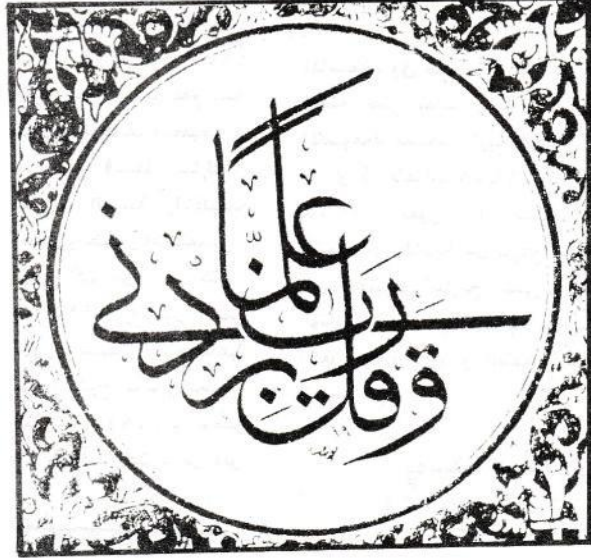 وقل رب زدني علماً